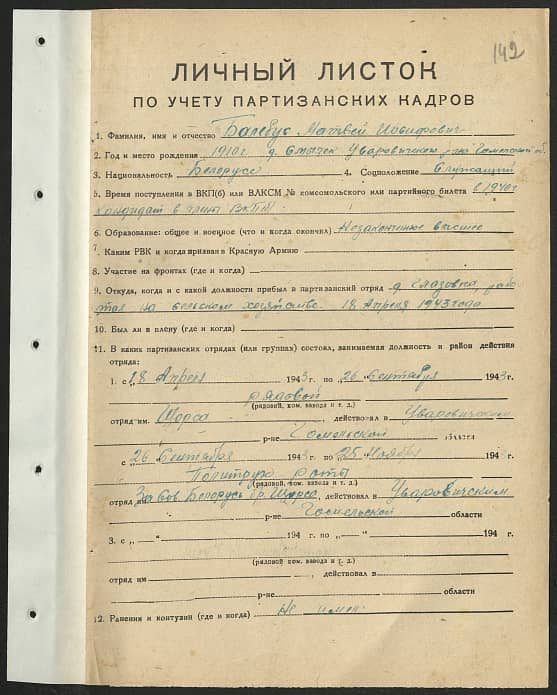 142
ЛИЧНЫЙ ЛИСТОК
ПО УЧЕТУ ПАРТИЗАНСКИХ КАДРОВ
1. Фамилия, имя и отчество Балебус Матвей Иосифович
2. Год и место рождения 1910 г. д. Смычек Уваровичского р-на Гомельской об.
3. Национальность Белорусс 4. Соцположение Служащий
5. Время поступления в ВКП(б) или ВЛКСМ № комсомольского или партийного билета с 1940г
кандидат в члены ВКПб
6. Образование: общее и военное (что и когда окончил) Незаконченное высшее
7. Каким РВК и когда призван в Красную Армию
8. Участие на фронтах (где и когда)
9. Откуда, когда и с какой должности прибыл в партизанский отряд д. Глазовка рабо-
тал на сельском хозяйстве. 18 Апреля 1943 года
10. Был ли в плену (где и когда)
11. В каких партизанских отрядах (или группах) состоял, занимаемая должность и район действия
отряда:
1. с „18 Апреля 1943 г. по „26 Сентября 1943 г.
рядовой
(рядовой, ком. взвода и т. д.)
отряд им. Щорса, действовал в Уваровичском
р-не Гомельской области
с „26 Сентября 1943 г. по „25 Ноября 194 г.
Политрук роты
(рядовой, ком. взвода и т. д.)
отряд За Сов Белорусь бр. Щорса, действовал в Уваровичским
р-не Гомельской области
3. с „—“ 194 г. по „—“ 194 г.
(рядовой, ком. взвода и т. д.)
отряд им —, действовал в
р-не области
12. Ранения и контузии (где и когда) Не имел